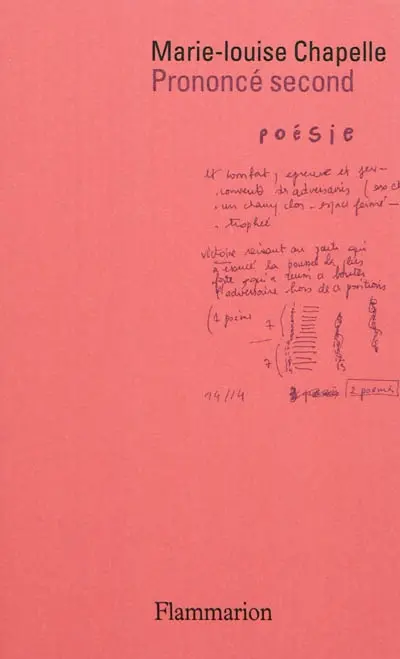 Marie-louise Chapelle
Prononcé second
poésie
et combat, épreuve et
des adversaires
un champ clos - espace fermé -
trophée
victoire revient au parti qui
a exercé la poussée la plus
forte et qui a réussi à bouter
l'adversaire hors de ses positions
(1 poème
7
7
14/14
2 poèmes
Flammarion